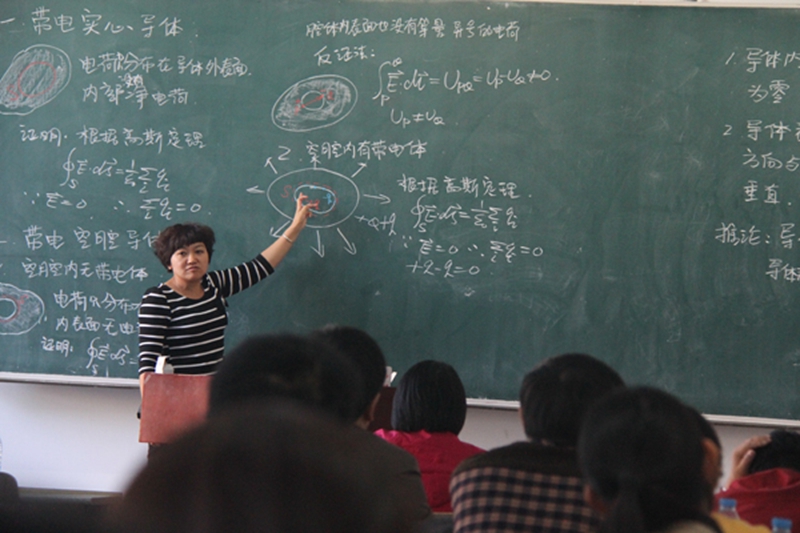 一. 带电实心导体
电荷分布在导体外表面.
内部净电荷.
证明: 根据高斯定理
∮S E⃗·dS⃗=1/ε₀ Σqᵢ
∵ E⃗=0 ∴ Σqᵢ=0
带电空腔导体
空腔内无带电体
电荷分布
内表面无电
证明: ∮S E⃗·dS⃗=
腔体内表面也没有等量异号的电荷
反证法:
∫P^Q E⃗·dl⃗=U_PQ=U_P-U_Q≠0.
U_P≠U_Q
2. 空腔内有带电体
S
+Q+q
根据高斯定理
∮S E⃗·dS⃗=1/ε₀ Σqᵢ
∵ E⃗=0 ∴ Σqᵢ=0
+q-q=0
1. 导体内
为零
2. 导体
方向与
垂直.
推论: 导
导体